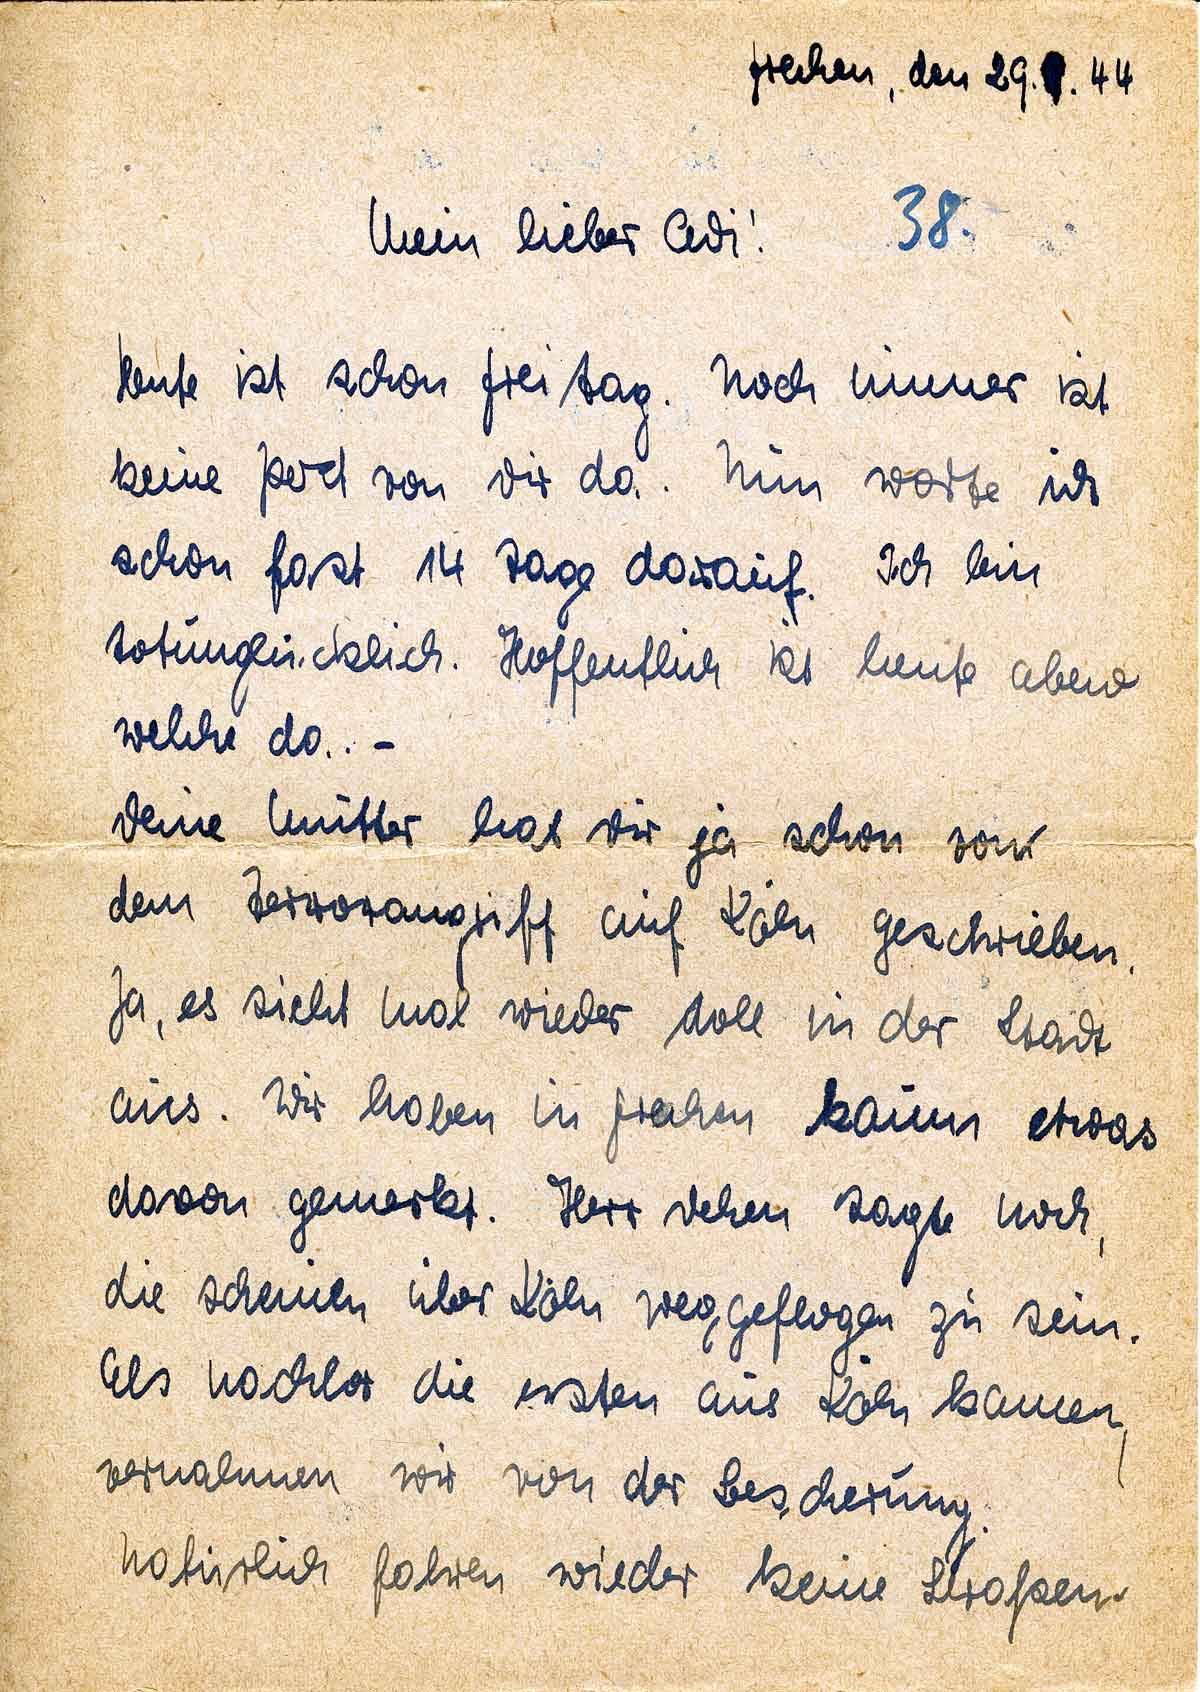 Frechen, den 29.9.44
Mein lieber Adi! 38.
Heute ist schon Freitag. Noch immer ist
keine Post von Dir da. Nun warte ich
schon fast 14 Tage darauf. Ich bin
totunglücklich. Hoffentlich ist heute abend
welche da. –
Deine Mutter hat Dir ja schon von
dem Terrorangriff auf Köln geschrieben.
Ja, es sieht mal wieder toll in der Stadt
aus. Wir haben in Frechen kaum etwas
davon gemerkt. Herr Dehen sagte noch,
die scheinen über Köln weggeflogen zu sein.
Als nachher die ersten aus Köln kamen,
vernahmen wir von der Bescherung.
Natürlich fahren wieder keine Straßen-